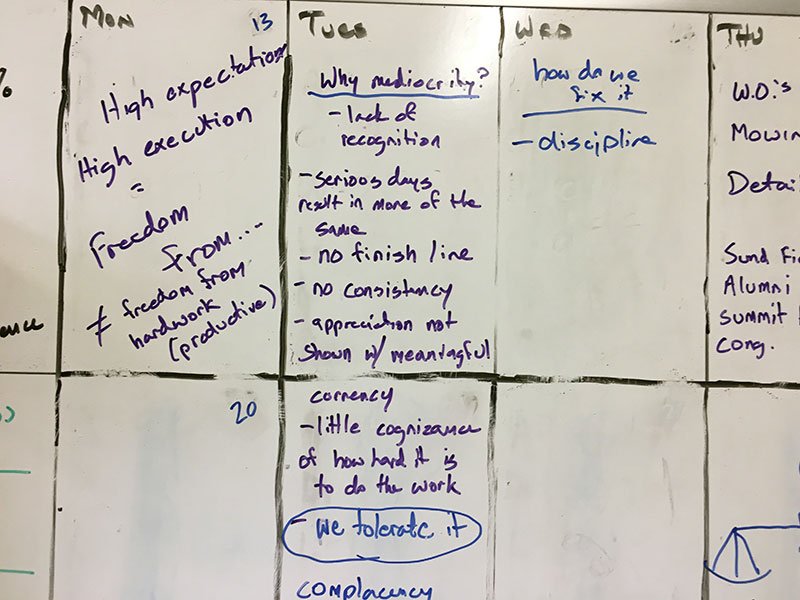 %
ence
MON
13
High expectations
High execution
=
Freedom
from...
≠ freedom from
hardwork
(productive)
20
TUES
Why mediocrity?
- lack of
recognition
- serious days
result in more of the
same
- no finish line
- no consistency
- appreciation not
shown w/ meaningful
currency
- little cognizance
of how hard it is
to do the work
- we tolerate it
complacency
WED
how do we
fix it
- discipline
THU
W.O.'s
Mowin
Detai
Sund Fi
Alumni
summit
cong.